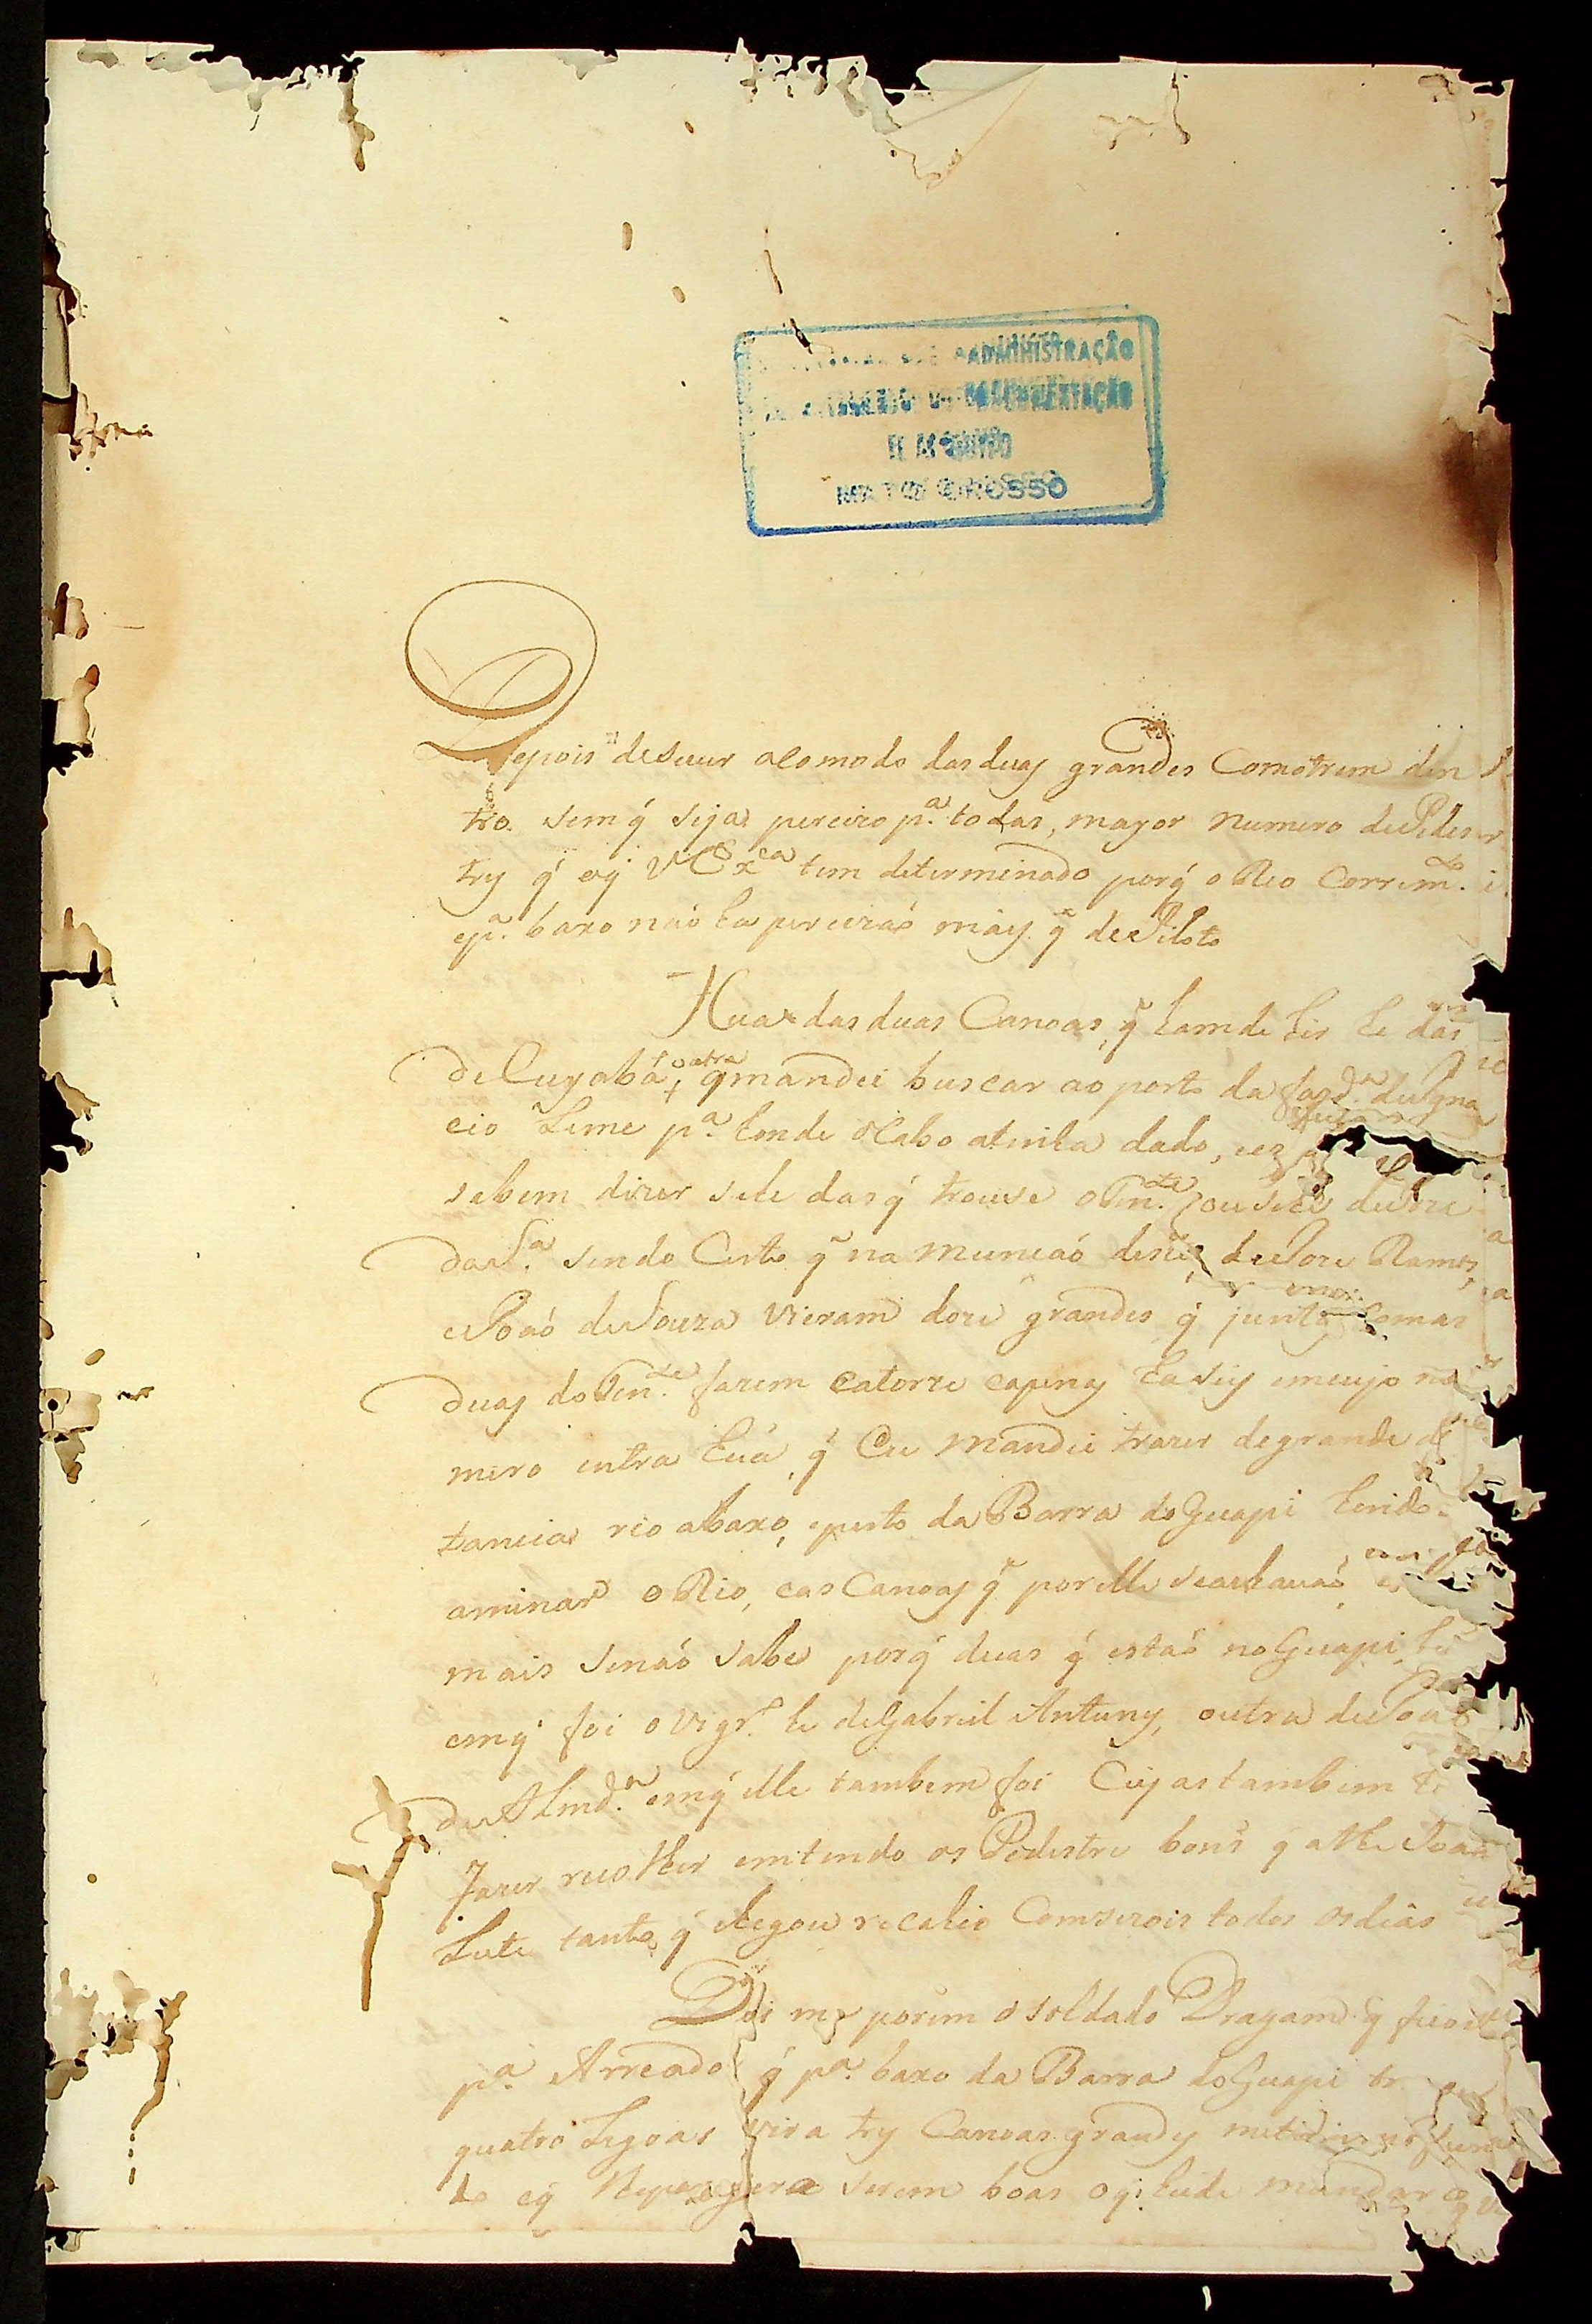 ADMINISTRAÇÃO
DOCUMENTAÇÃO
E ARQUIVO
MATO GROSSO
Depois de auer acomodo das duas grandes Comotrem den
tro. sem q́ seja percizo p.ª todas, mayor numero de Pedes
try q́ oq́ V Exca tem determinado porq́ o Rio Corre m.to
ep.ª baxo naó ha percizaó mais q̃ de Piloto
Hua das duas Canoas, q̃ ham de hir he das
de Cuyabá, outra q̃ mandei buscar ao porto da fazd.ª de Igna
cio Leme p.ª honde o Cabo a tinha dado,
sabem dizer se he das q́ trouse o Ten.te ou se he de Joze
da S.ª sendo Certo q̃ na munçaó deste, de Joze Ramos,
e Joaó de Souza vieram doze grandes q́ juntas Com as
duas do Ten.te fazem catorze e apenas ha seis em cujo nu
mero entra huá, q́ Eu mandei trazer de grande dis
tancia rio abaxo, e perto da Barra do Guapé hindo
aminar o Rio, e as Canoas q̃ por elle se achauaó,
mais senaó sabe porq́ duas q́ estaó no Guapé,
em q́ foi o vigr.º he de Gabriel Antuns, outra de Joaó
de Almd.ª em q́ elle tambem foi Cujas tambem
fazer recolher emtendo os Pedestre bons q̃ athe Joaó
Leite tanto q́ chegou recahio Com sezois todos os dias
Dis me porem o soldado Dragam q̃ ficou
p.ª Arreado q́ p.ª baxo da Barra do Guapé
quatro Legoas vira try Canoas grandes metidas no fun
do eq́ serem boas o q́ heide mandar